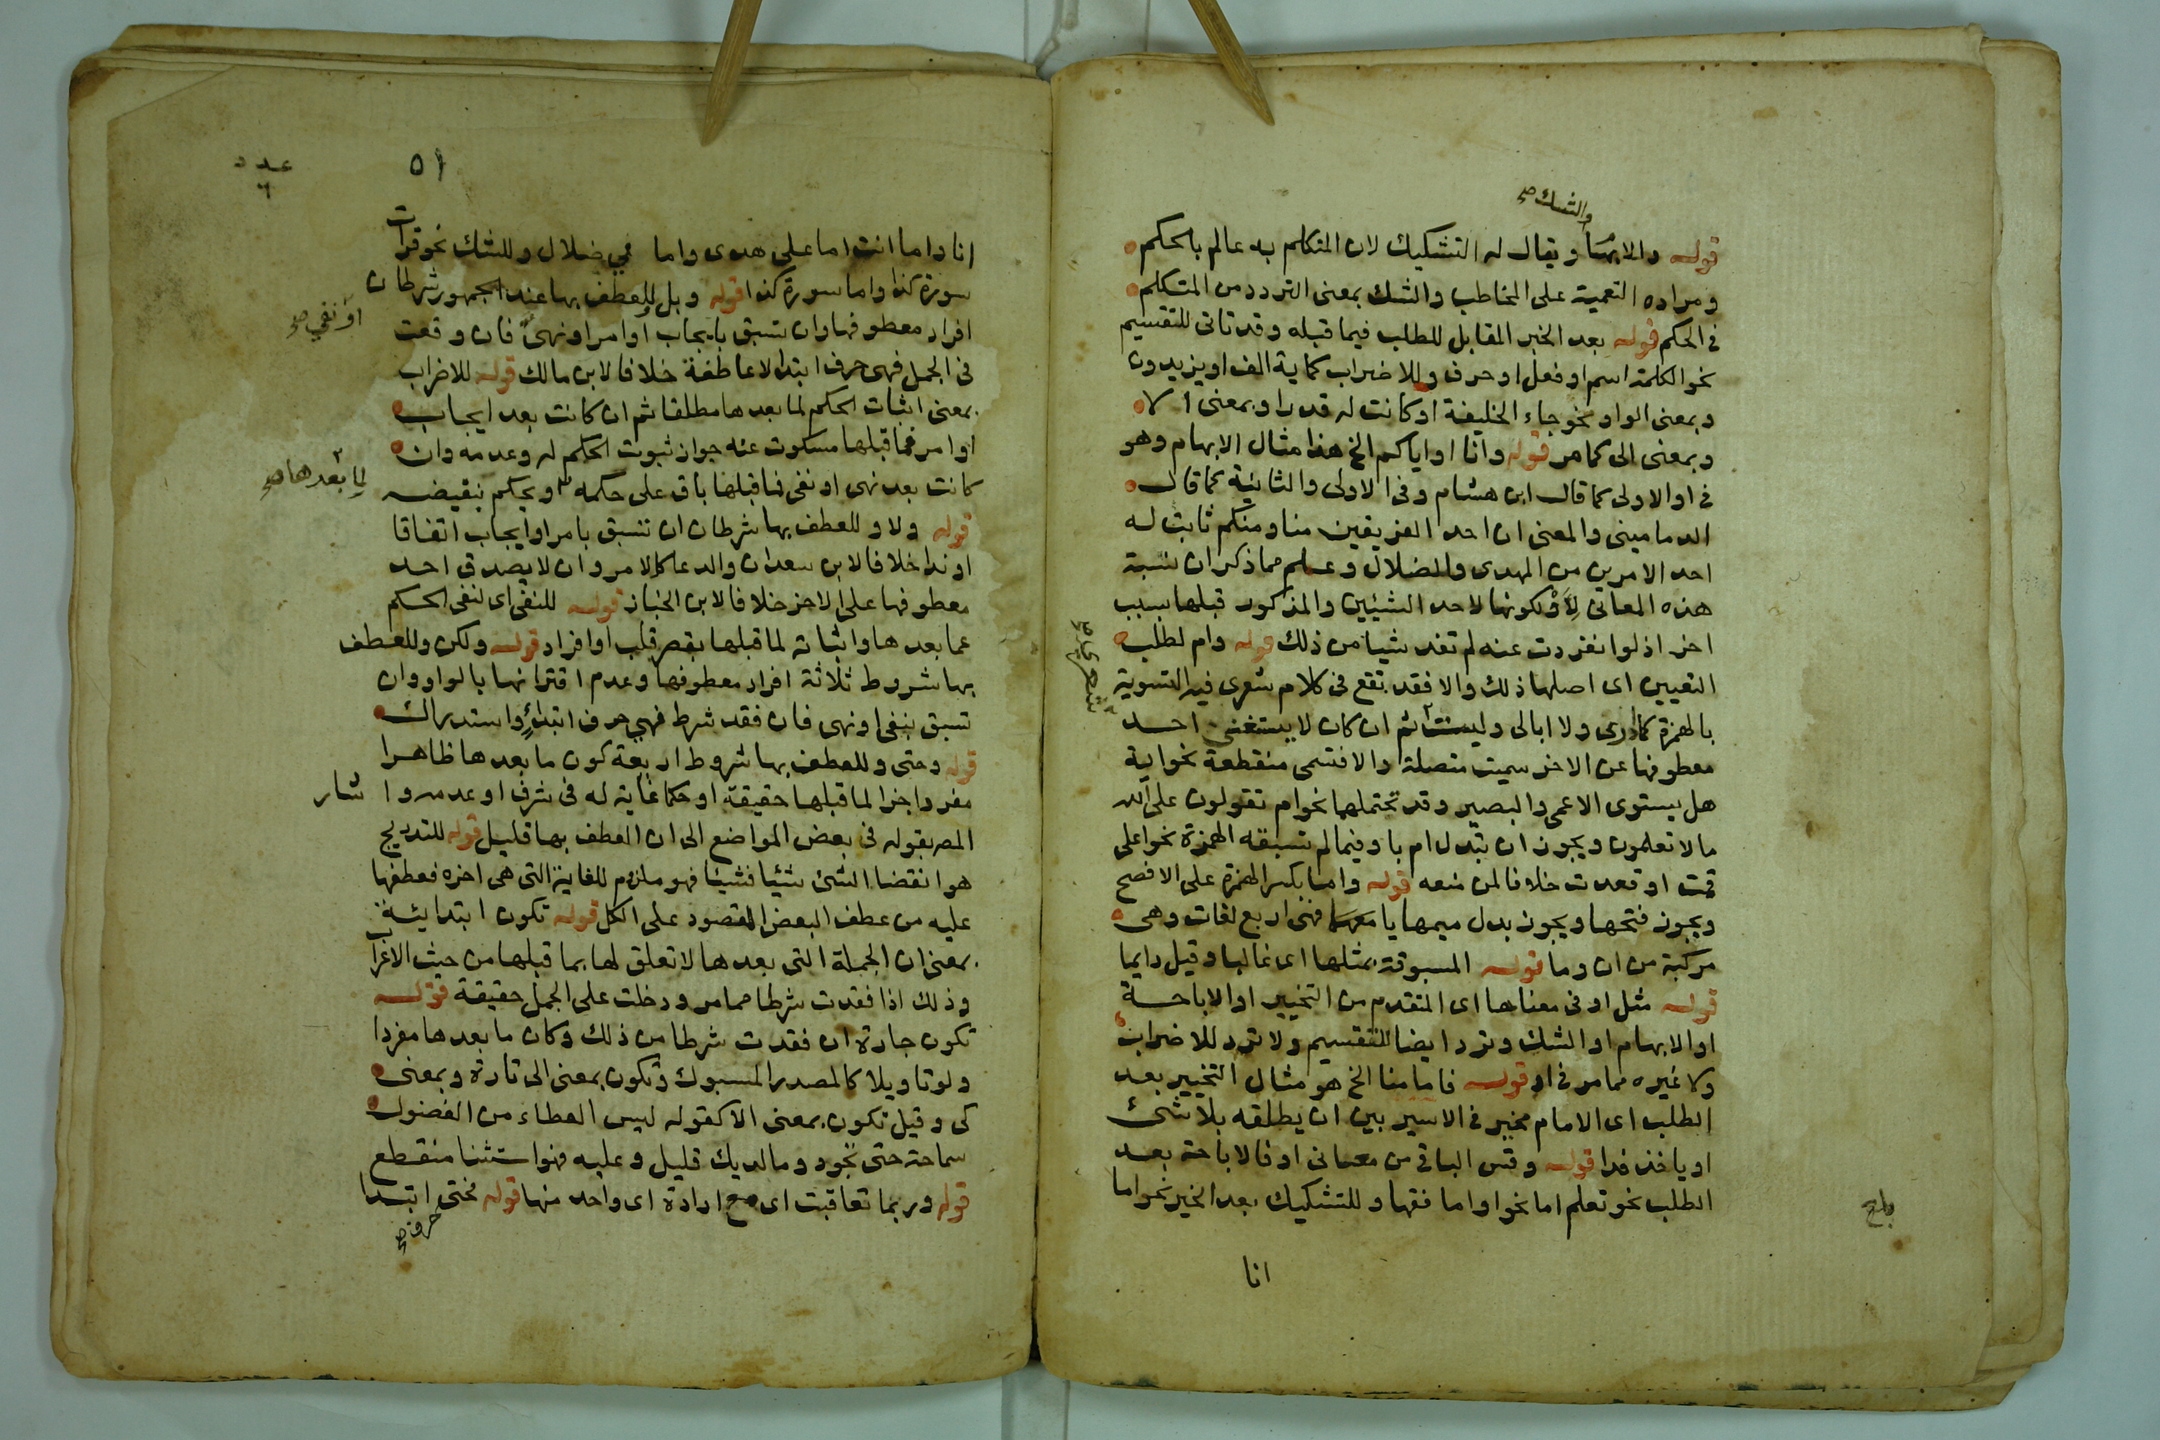 والشك صح
قوله والابهام ويقال له التشكيك لان المتكلم به عالم بالحكم
ومراده التعمية على المخاطب والشك بمعنى التردد من المتكلم
في الحكم قوله بعد الخبر المقابل للطلب فيما قبله وقد تاتى للتقسيم
نحو الكلمة اسم او فعل او حرف وللاضراب كماية الف او يزيدون
وبمعنى الواو نحو جاء الخليفة او كانت له قدرا وبمعنى الا
وبمعنى الى كما مر قوله وانا او اياكم الخ هذا مثال الابهام وهو
في او الاولى كما قال ابن هشام وفى الاولى والثانية كما قال
الدمامينى والمعنى ان احد الفريقين منا ومنكم ثابت له
احد الامرين من الهدى والضلال وعلم مما ذكر ان نسبة
هذه المعانى لأو لكونها لاحد الشيئين والمذكور قبلها بسبب
اخر اذ لو انفردت عنه لم تفد شيا من ذلك قوله وام لطلب
التعيين اى اصلها ذلك والا فقد تقع فى كلام شعرى فيه التسوية
بالهمزة كما ادرى ولا ابالى وليست ثم ان كان لا يستغنى احد
شعرى صح
معطوفها عن الاخر سميت متصلة والا فتسمى منقطعة نحو اية
هل يستوى الاعمى والبصير وقد تحتملهما نحو ام تقولون على الله
ما لا تعلمون ويجوز ان تبدل ام باو فيما لم تسبقه الهمزة نحو اعلى
قمت او قعدت خلافا لمن منعه قوله واما بكسر الهمزة على الافصح
ويجوز فتحها ويجوز بدل ميمها يا معهما فهى اربع لغات وهى
مركبة من ان وما قوله المسبوقة بمثلها اى غالبا وقيل دايما
قوله مثل او فى معناها اى المتقدم من التخيير او الاباحة
او الابهام او الشك وترد ايضا للتقسيم ولا ترد للاضراب
ولا غيره مما مر فى او قوله فاما منا الخ هو مثال التخيير بعد
الطلب اى الامام مخير فى الاسير بين ان يطلقه بلا شئ
او ياخذ فدا قوله وقس الباقى من معانى او فالاباحة بعد
الطلب نحو تعلم اما نحوا واما فقها وللتشكيك بعد الخبر نحو اما
بلغ
انا
عدد
٦
٥١
انا واما انت اما على هدى واما في ضلال وللشك نحو قرات
سورة كذا واما سورة كذا قوله وبل وللعطف بها عند الجمهور شرطان
افراد معطوفها وان تسبق بايجاب او امر او نهى فان وقعت
او نفي صح
فى الجمل فهى حرف ابتدا لا عاطفة خلافا لابن مالك قوله للاضراب
بمعنى اثبات الحكم لما بعدها مطلقا ثم ان كانت بعد ايجاب
او امر فما قبلها مسكوت عنه جواز ثبوت الحكم له وعدمه وان
كانت بعد نهى او نفى فما قبلها باق على حكمه ويحكم بنقيضه
لما بعدها صح
قوله ولا وللعطف بها شرطان ان تسبق بامر او ايجاب اتفاقا
او ندا خلافا لابن سعدان والدعا كالامر وان لا يصدق احد
معطوفها على الاخر خلافا لابن الخباز قوله للنفى اى لنفى الحكم
عما بعدها واثباته لما قبلها بقصر قلب او افراد قوله ولكن وللعطف
بها شروط ثلاثة افراد معطوفها وعدم اقترانها بالواو وان
تسبق بنفى او نهى فان فقد شرط فهى حرف ابتداء واستدراك
قوله وحتى وللعطف بها شروط اربعة كون ما بعدها ظاهرا
مفردا جزا لما قبلها حقيقة او حكما غاية له فى شرف او عدمه واشار
المص بقوله فى بعض المواضع الى ان العطف بها قليل قوله للتدريج
هو انقضا الشئ شئيا فشيئا فهو ملزوم للغاية التى هى اخره فعطفها
عليه من عطف البعض المقصود على الكل قوله تكون ابتدايئة
بمعنى ان الجملة التى بعدها لا تعلق لها بما قبلها من حيث الاعراب
وذلك اذا فقدت شرطا مما مر ودخلت على الجمل حقيقة قوله
تكون جارة ان فقدت شرطا من ذلك وكان ما بعدها مفردا
ولو تاويلا كالمصدر المسبوك وتكون بمعنى الى تارة وبمعنى
كى وقيل تكون بمعنى الا كقوله ليس العطاء من الفضول
سماحة حتى تجود وما لديك قليل وعليه فهو استثنا منقطع
قوله وربما تعاقبت اى مع ارادة اى واحد منها قوله فحتى ابتدا
حرف صح